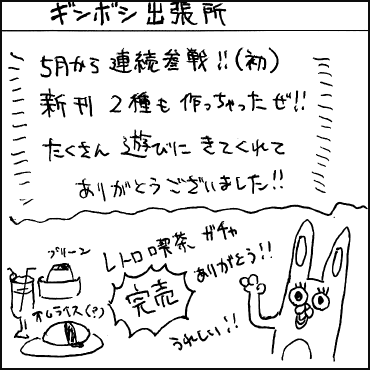 ギンボシ出張所
5月から連続参戦!!(初)
新刊2種も作っちゃったぜ!!
たくさん遊びにきてくれて
ありがとうございました!!
プリーン
レトロ喫茶ガチャ
ありがとう!!
完売
オムライス(?)
うれしい!!